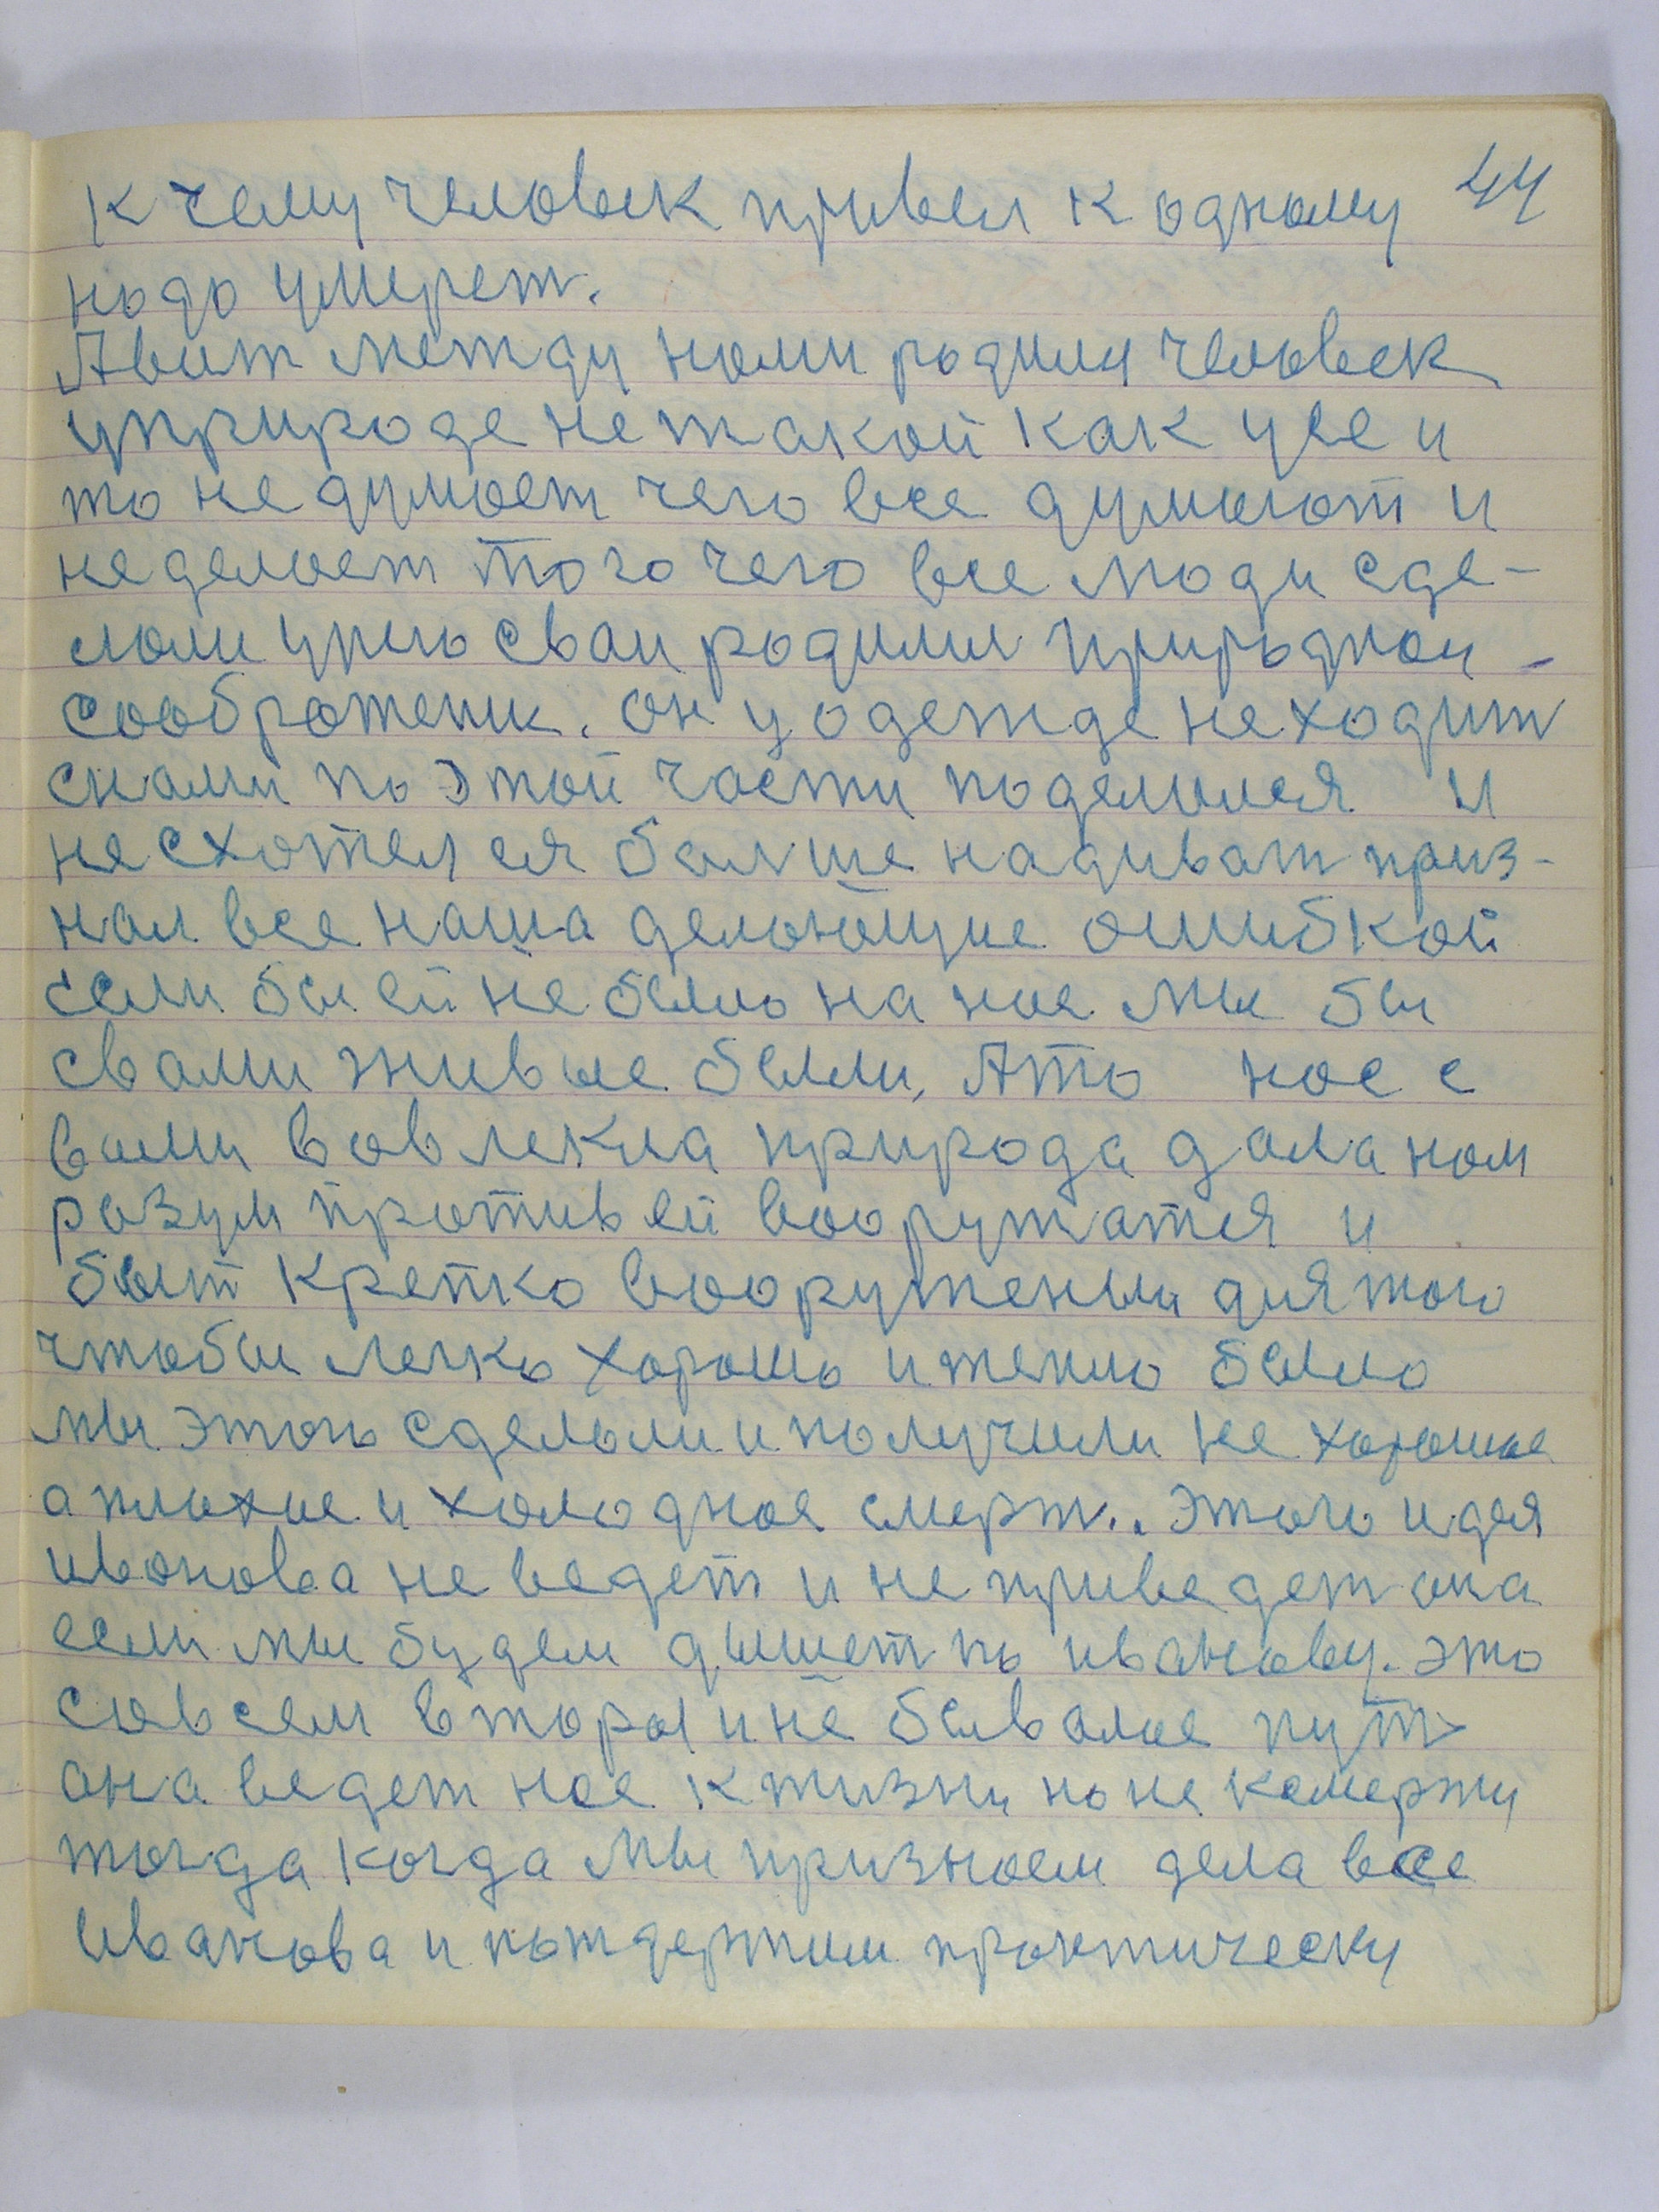 к чему человек привел к одному 44
надо умерет.
Авит между нами родился человек
уприроде нетакой как усе и
то недумает чего все думают и
неделает того чего все люди сде-
лали унего сваи родилис природнаи
соображении. он у одежде неходит
снами по этой части поделился и
несхотел ся болше надиват приз-
нал все наша делающие ошибкой
если бы ей небыло на нас мы бы
свами живые были, Ато нас с
вами вовлекла природа дала нам
разум против ей вооружатся и
быт крепко вооруженым длятого
чтобы легко хорошо итепло было
мы этого сделали иполучили не хорошое
а плохое и холодное смерт.. этого идея
иванова не ведет и не приведет она
если мы будем дышет по иванову. это
совсем вторы ине бывалое пут
она ведет нас кжизни но не ксмерти
тогда когда мы признаем дела все
Иванова и потдержим практически